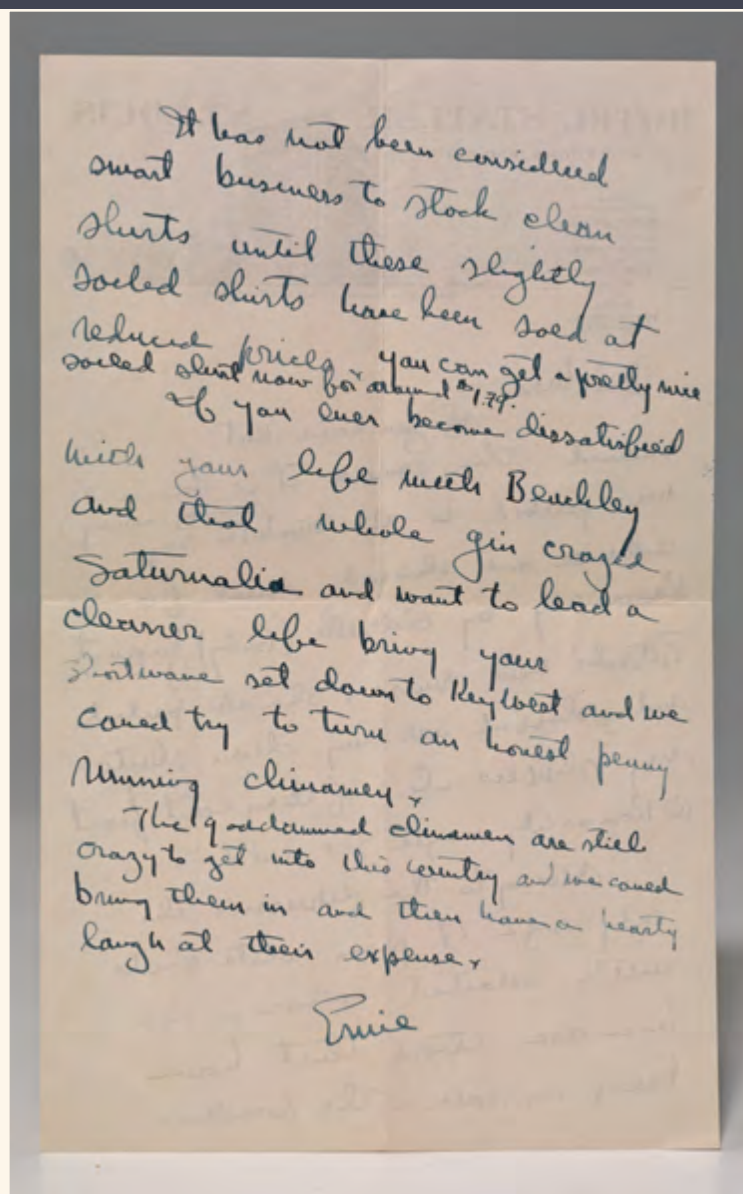 It has not been considered
smart business to stock clean
shirts until these slightly
soiled shirts have been sold at
reduced prices. you can get a pretty nice
soiled shirt now for around $1.79.
If you ever become dissatisfied
with your life with Benchley
and that whole gin crazed
Saturnalia and want to lead a
cleaner life bring your
shortwave set down to Key West and we
could try to turn an honest penny
running chinamen.
The goddamned chinamen are still
crazy to get into this country and we could
bring them in and then have a hearty
laugh at their expense.
Ernie